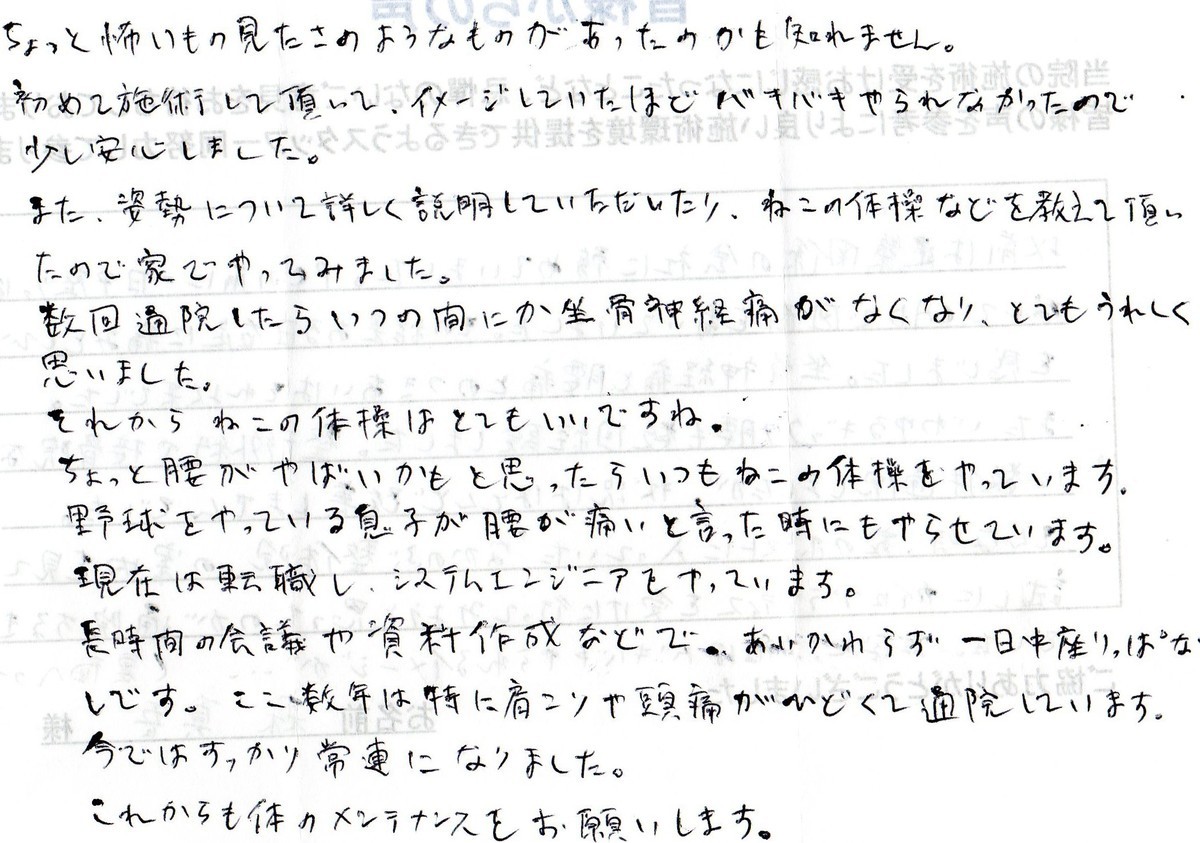 ちょっと怖いもの見たさのようなものがあったのかも知れません。
初めて施術して頂いて、イメージしていたほどバキバキやられなかったので
少し安心しました。
また、姿勢について詳しく説明していただいたり、ねこの体操などを教えて頂い
たので家でやってみました。
数回通院したらいつの間にか坐骨神経痛がなくなり、とてもうれしく
思いました。
それからねこの体操はとてもいいですね。
ちょっと腰がやばいかもと思ったらいつもねこの体操をやっています。
野球をやっている息子が腰が痛いと言った時にもやらせています。
現在は転職し、システムエンジニアをやっています。
長時間の会議や資料作成などで、あいかわらず一日中座りっぱな
しです。ここ数年は特に肩こりや頭痛がひどくて通院しています。
今ではすっかり常連になりました。
これからも体のメンテナンスをお願いします。